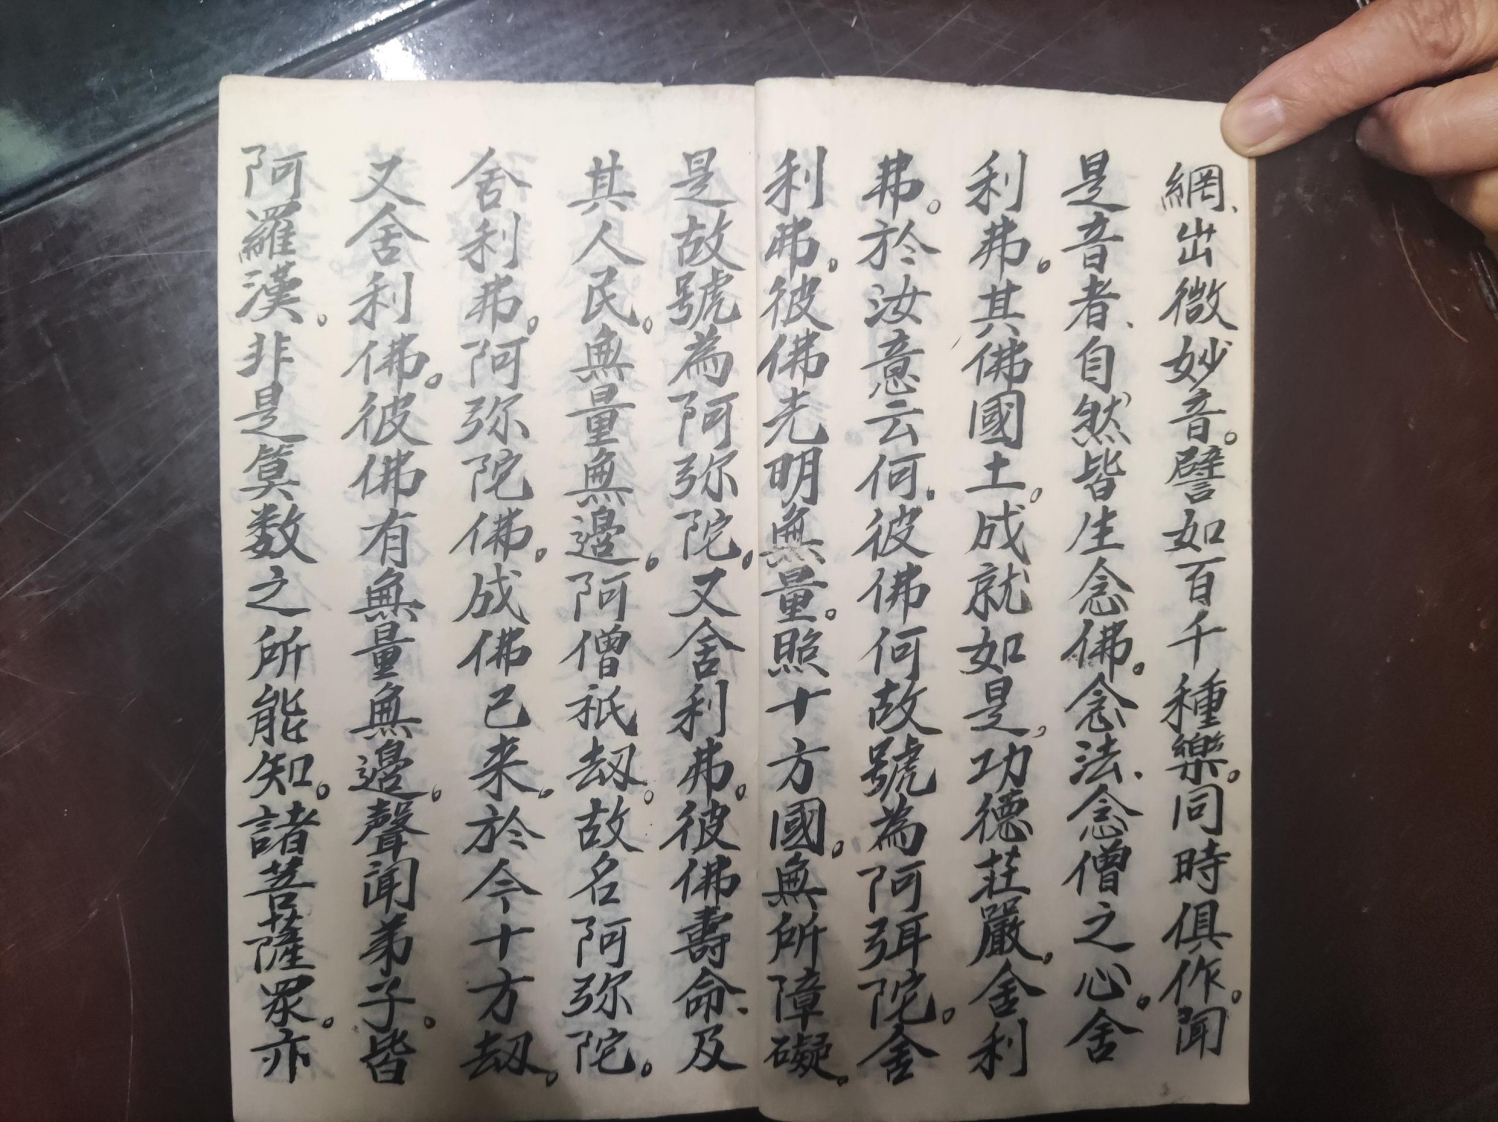 網、出微妙音。譬如百千種樂。同時俱作。聞
是音者、自然皆生念佛。念法、念僧之心。舍
利弗。其佛國土。成就如是。功德莊嚴。舍利
弗。於汝意云何。彼佛何故號為阿弭陀。舍
利弗。彼佛光明無量。照十方國。無所障礙。
是故號為阿弥陀。又舍利弗。彼佛壽命、及
其人民。無量無邊。阿僧祇劫。故名阿弥陀。
舍利弗。阿弥陀佛。成佛已来。於今十方劫。
又舍利佛。彼佛有無量無邊。聲聞弟子。皆
阿羅漢。非是算数之所能知。諸菩薩眾。亦